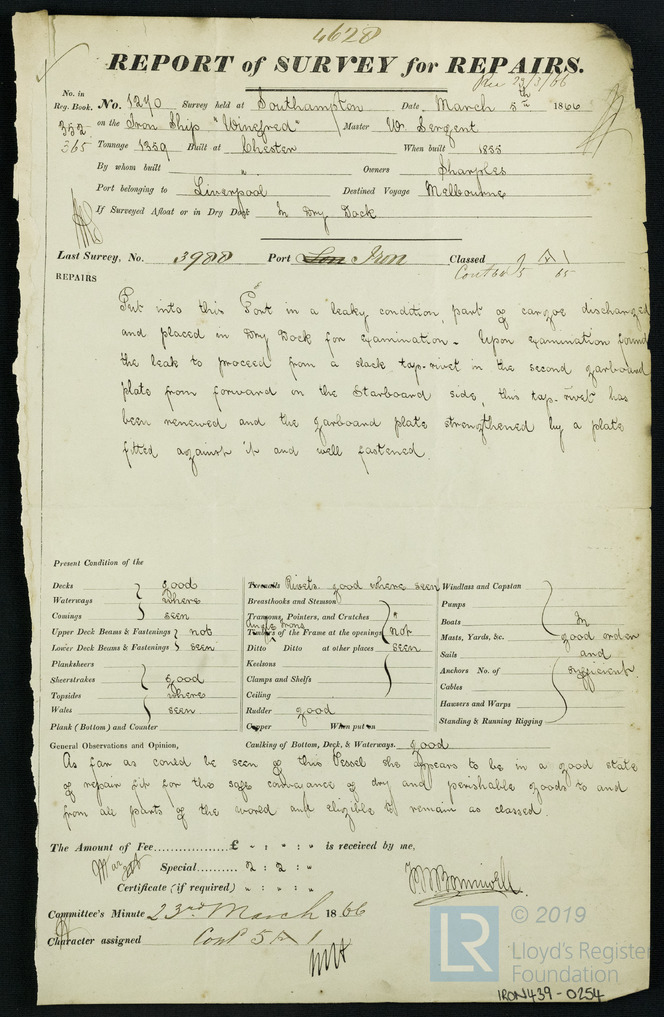 4628
REPORT of SURVEY for REPAIRS.
Rec 23/3/66
No. in Reg. Book. No. 1290 Survey held at Southampton Date, March 5th 1866
352 on the Iron Ship "Winefred" Master W. Sergent
365 Tonnage 1359 Built at Chester When built 1855
By whom built " Owners Sharples
Port belonging to Liverpool Destined Voyage Melbourne
If Surveyed Afloat or in Dry Dock In Dry Dock
Last Survey, No. 3988 Port Lon Iron Classed A 1
Contd 5 65
REPAIRS
Put into this Port in a leaky condition, part of cargoe discharged
and placed in Dry Dock for examination - Upon examination found
the leak to proceed from a slack tap-rivet in the second garboard
plate from forward on the Starboard side, this tap-rivet has
been renewed and the garboard plate strengthened by a plate
fitted against it and well fastened.
Present Condition of the
Decks good
Waterways where
Comings seen
Upper Deck Beams & Fastenings not
Lower Deck Beams & Fastenings seen
Planksheers
Sheerstrakes good
Topsides where
Wales seen
Plank (Bottom) and Counter
Treenails Rivets good where seen
Breasthooks and Stemson
Transoms, Pointers, and Crutches "
Angle Irons
Timbers of the Frame at the openings not
Ditto Ditto at other places seen
Keelsons
Clamps and Shelfs
Ceiling
Rudder good
Copper When put on
Caulking of Bottom, Deck, & Waterways. good
Windlass and Capstan
Pumps
Boats In
Masts, Yards, &c. good order
Sails and
Anchors No. of sufficient
Cables
Hawsers and Warps
Standing & Running Rigging
General Observations and Opinion,
As far as could be seen of this Vessel she appears to be in a good state
of repair fit for the safe conveyance of dry and perishable goods to and
from all parts of the world and eligible to remain as classed.
The Amount of Fee................£ " : " : " is received by me,
Special.......... 2 : 2 : "
Certificate (if required) " : " : "
Committee's Minute 23rd March 1866
Character assigned Contd 5 A 1
© 2019
LR
Lloyd's Register
Foundation
IRON439-0254